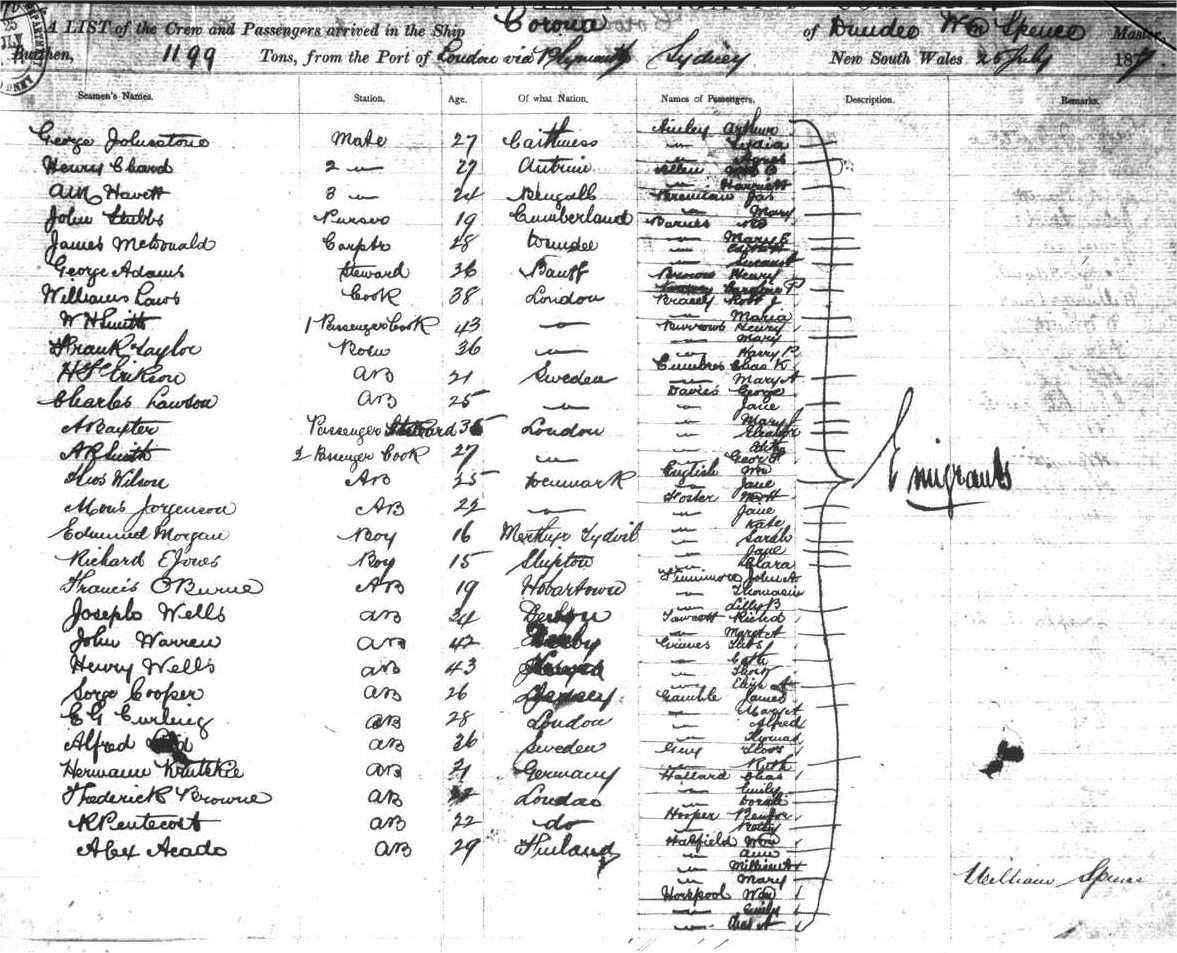 A LIST of the Crew and Passengers arrived in the Ship Corona of Dundee Wm Spence Master,
Burthen, 1199 Tons, from the Port of London via Plymouth Sydney New South Wales 25 July 187
Seamen's Names. Station. Age. Of what Nation. Names of Passengers. Description. Remarks.
George Johnstone Mate 27 Caithness
Henry Chard 2 " 27 Antrim
Havett 3 " 24 Bengall
John Stubbs Purser 19 Cumberland
James McDonald Carptr 28 Dundee
George Adams Steward 36 Banff
Williams Laws Cook 38 London
W H Smith 1 Passenger Cook 43 "
Frank Taylor Bosn 36 "
Erikson AB 21 Sweden
Charles Lawson AB 25 "
A Baxter Passenger Steward 36 London
A R Smith 2 Passenger Cook 27 "
Thos Wilson AB 25 Denmark
Mons Jorgenson AB 22 "
Edmund Morgan Boy 16 Merthyr Tydvil
Richard E Jones Boy 15 Shipton
Francis O'Burne AB 19 Hobartown
Joseph Wells AB 24
John Warren AB 42 Derby
Henry Wells AB 43
Cooper AB 26 Jersey
E G Curling AB 28 London
Alfred AB 26 Sweden
Hermann AB 21 Germany
Frederick Browne AB London
R Pentecost AB 22 do
Alex Acado AB 29 Finland
Ainley Arthur
" Lydia
" Agnes
Allen
" Harriett
Brennan Jas
" Mary
Barnes
" Mary E
"
"
Brown Henry
" Caroline P
Brasely Robt J
" Maria
Burrows Henry
" Mary
" Harry P
Chas K
" Mary A
Davies George
" Jane
" Mary J
" Eleanor
" Edith
" Geor
English Wm
" Jane
Foster
" Jane
" Kate
" Sarah
" Jane
" Clara
Finnimore John
" Thomasin
" Lilly B
Fawcett Richd
" Margt A
Grimes Thos
" Cath
" Thos
" Eliza A
Gamble James
" Margt
" Alfred
" Thomas
Guy Thos
" Ruth
Hallard Chas
" Emily
"
Hooper
"
Hatfield Wm
" Ann
"
" Mary
Horspool Wm
" Emily
" Chas A
Emigrants
William Spence